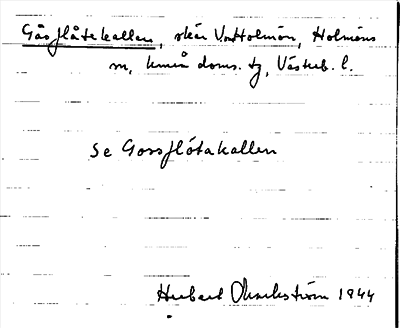 Gåsflåtekallen, skär V. om Holmön, Holmöns
sn, Umeå doms. tg, Västerb. l.
Se Gossflötakallen
Herbert Markström 1944